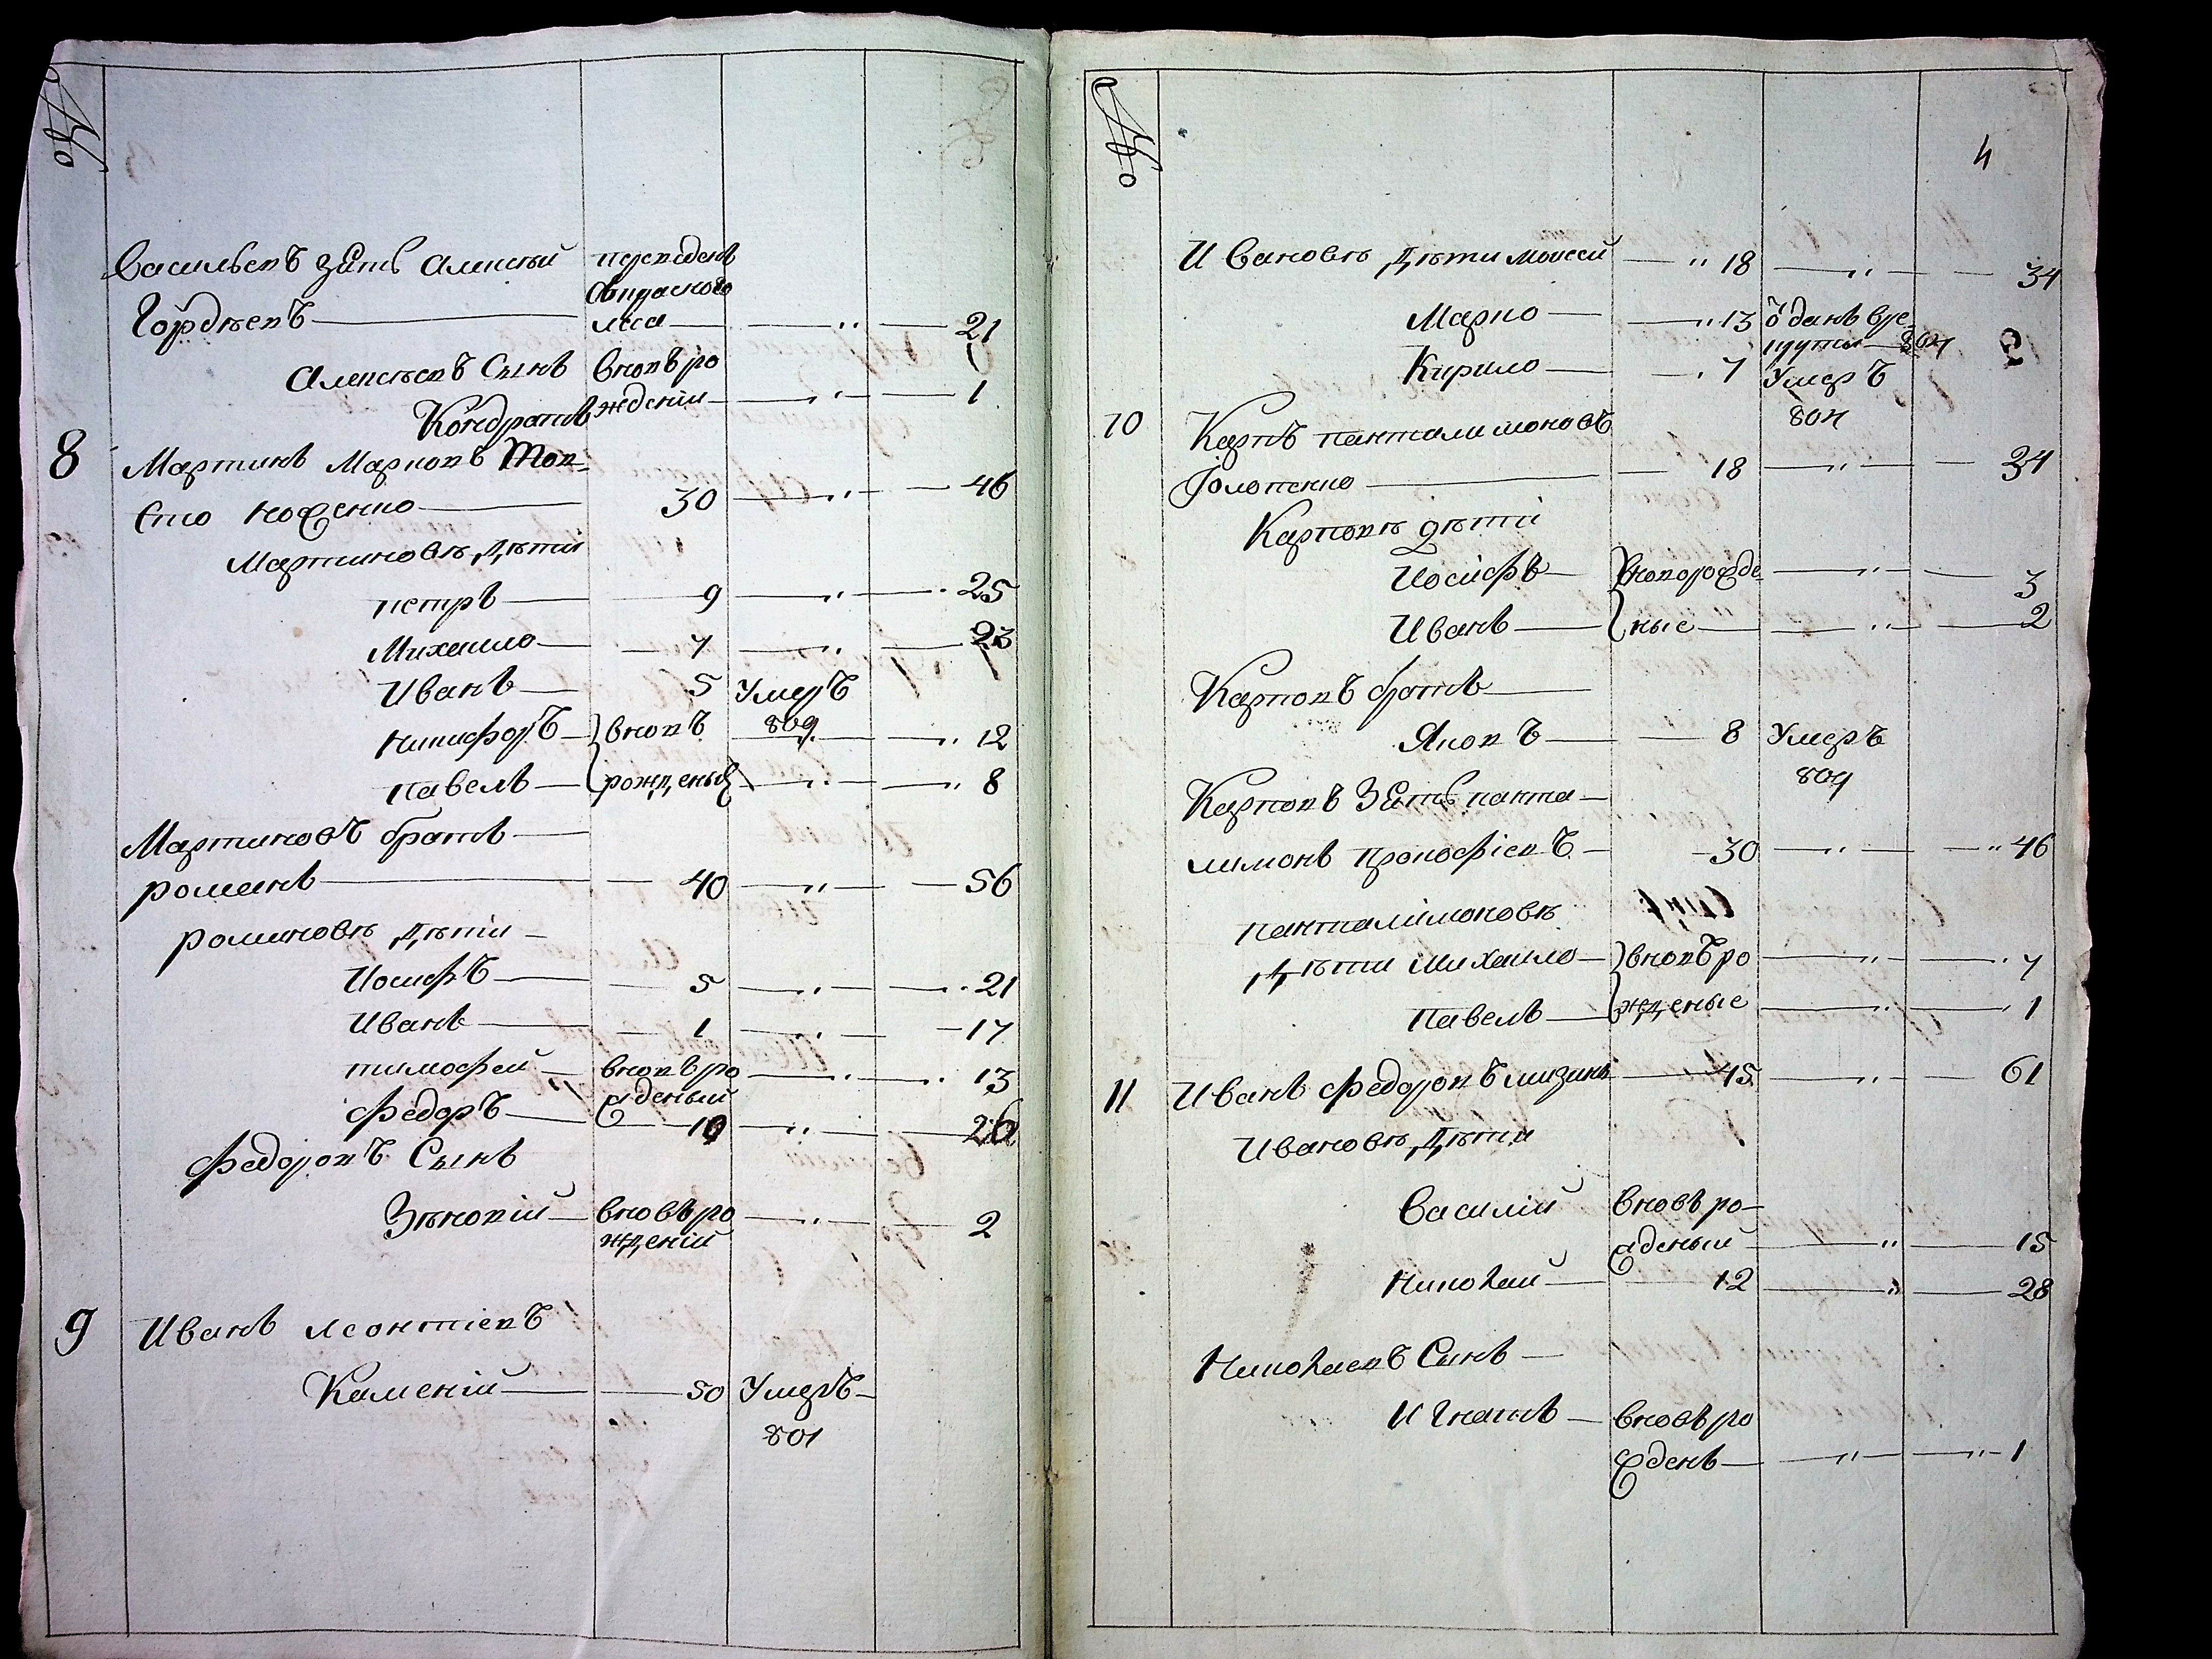 №
Васильевъ зять Алексей переведенъ
съ красного
Гордѣевъ лиса 21
Алексѣевъ Сынъ вновь ро
Кондратъ жденiи 1
8 Мартинъ Марковъ Тов-
сто ноженко 30 46
Мартиновы дѣти
петръ 9 25
Михаило 7 23
Иванъ 5 Умеръ
809.
Никифоръ вновъ 12
павелъ рожденый 8
Мартиновъ братъ
романъ 40 56
романовы дѣти
Иосифъ 5 21
Иванъ 1 17
тимофей вновъ ро 13
жденый
федоръ 10 26
федоровъ Сынъ
Зѣновiй вновъ ро 2
жденiй
9 Иванъ леонтiевъ
Каменiй 50 Умеръ
801
№
4
Ивановы дѣти моисей 18 34
Марко 13 одданъ в ре-
круты 807
Кирило 7 Умеръ
804
10 Карпъ панталимоновъ
Голопенко 18 34
Карповы дѣти
Иосифъ вноворожде 3
Иванъ ные 2
Карповъ братъ
Яковъ 8 Умеръ
804
Карповъ Зять панта-
лимонъ прокофiевъ 30 46
панталiмоновы
дѣти михаило вновъ ро 7
павелъ жденые 1
11 Иванъ федоровъ мизинъ 45 61
Ивановы дѣти
Василiй вновъ ро-
жденый 15
Николай 12 28
Николаевъ Сынъ
Игнатъ вновъ ро
жденъ 1